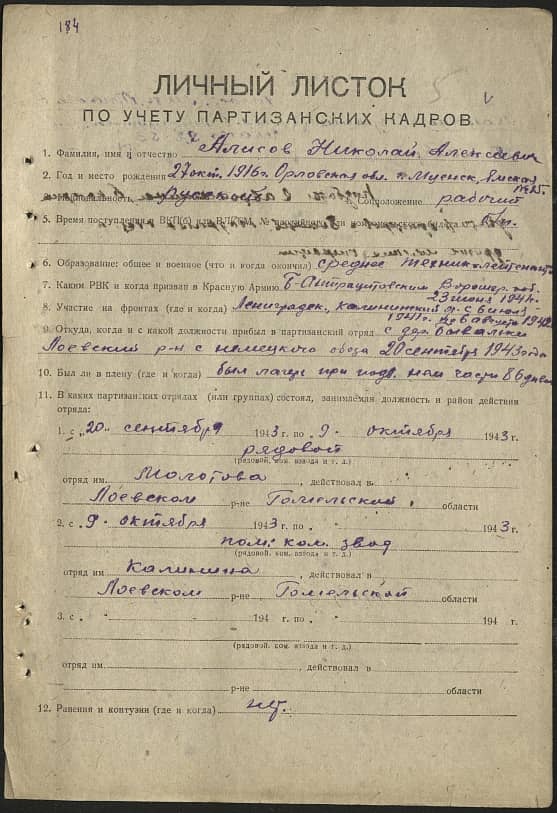 184
ЛИЧНЫЙ ЛИСТОК
ПО УЧЕТУ ПАРТИЗАНСКИХ КАДРОВ
1. Фамилия, имя и отчество Алисов Николай Алексеевич
2. Год и место рождения 27 окт. 1916 г. Орловская обл.
русский Соцположение рабочий
5. Время поступления в ВКП(б) или ВЛКСМ, №
6. Образование: общее и военное (что и когда окончил) среднее техник-лейтенант
7. Каким РВК и когда призван в Красную Армию Б-Антрацитовским Ворошил. обл.
23 июня 1941 г.
8. Участие на фронтах (где и когда) Ленинградск., Калининский с 6 июля
1941 г. по 6 августа 1942
9. Откуда, когда и с какой должности прибыл в партизанский отряд с дер. Бывальки
Лоевский р-н с немецкого обоза 20 сентября 1943 года
10. Был ли в плену (где и когда) был лагерь при нем части 86 дней
11. В каких партизанских отрядах (или группах) состоял, занимаемая должность и район действия
отряда:
1. с „20" сентября 1943 г. по „9" октября 1943 г.
рядовой
(рядовой, ком. взвода и т. д.)
отряд им Молотова, действовал в
Лоевском р-не Гомельской области
2. с „9" октября 1943 г. по „ " 1943 г.
пом. ком. звод
(рядовой, ком. взвода и т. д.)
отряд им Калинина, действовал в
Лоевском р-не Гомельской области
3. с „ " 194 г. по „ " 194 г.
(рядовой, ком. взвода и т. д.)
отряд им., действовал в
р-не области
12. Ранения и контузии (где и когда) нет.